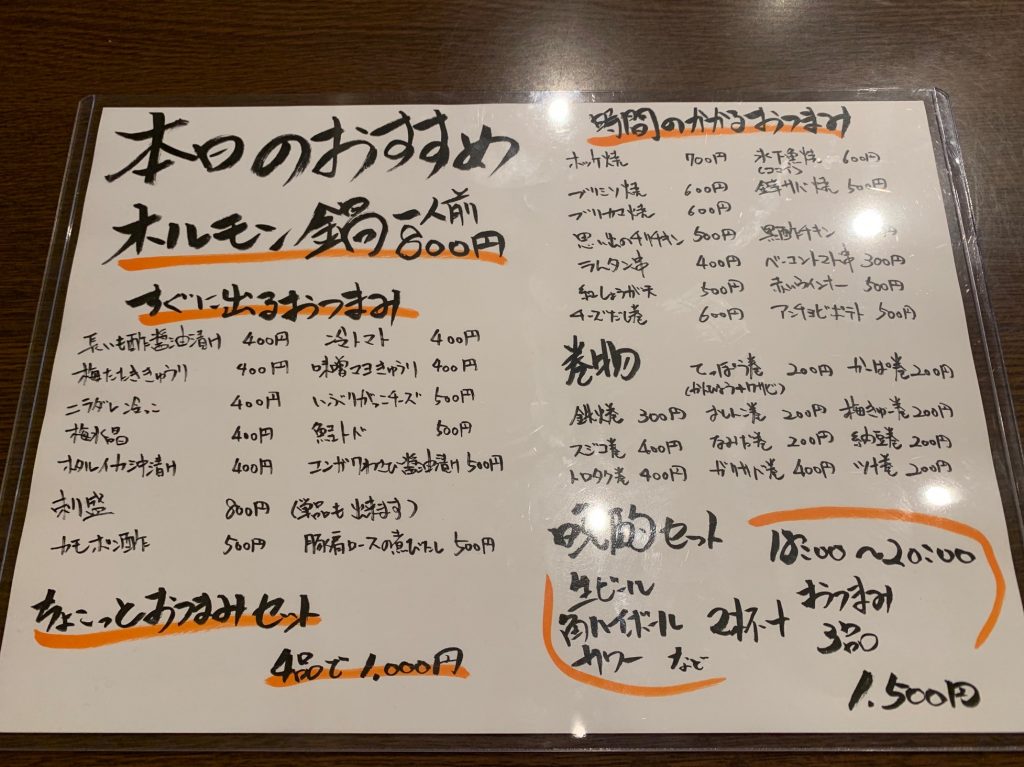 本日のおすすめ
オルモン鍋 一人前 800円
すぐに出るおつまみ
長いも酢醤油漬け 400円 冷トマト 400円
梅たたききゅうり 400円 味噌マヨきゅうり 400円
ニラダレ冷っこ 400円 いぶりがっこチーズ 500円
梅水晶 400円 鮭トバ 500円
ホタルイカ沖漬け 400円 コンガクわさび醤油漬け 500円
刺盛 800円 (単品も出来ます)
カモポン酢 500円 豚肩ロースの煮びたし 500円
ちょこっとおつまみセット
4品で 1,000円
時間のかかるおつまみ
ホッケ焼 700円 氷下魚焼 600円
(コマイ)
ブリミソ焼 600円 サバ焼 500円
ブリカマ焼 600円
思い出のチリチキン 500円 黒酢チキン
ラムタン串 400円 ベーコントマト串 300円
紅しょうが天 500円 赤いウインナー 500円
チーズだし巻 600円 アンチョビポテト 500円
巻物 てっぽう巻 200円 かっぱ巻 200円
(かんぴょう+ワサビ)
鉄火巻 300円 おしんこ巻 200円 梅きゅー巻 200円
スジコ巻 400円 なみだ巻 200円 納豆巻 200円
トロタク巻 400円 ガリサバ巻 400円 ツナ巻 200円
晩酌セット 18:00〜20:00
生ビール
角ハイボール 2杯+ おつまみ 3品
サワー など
1,500円